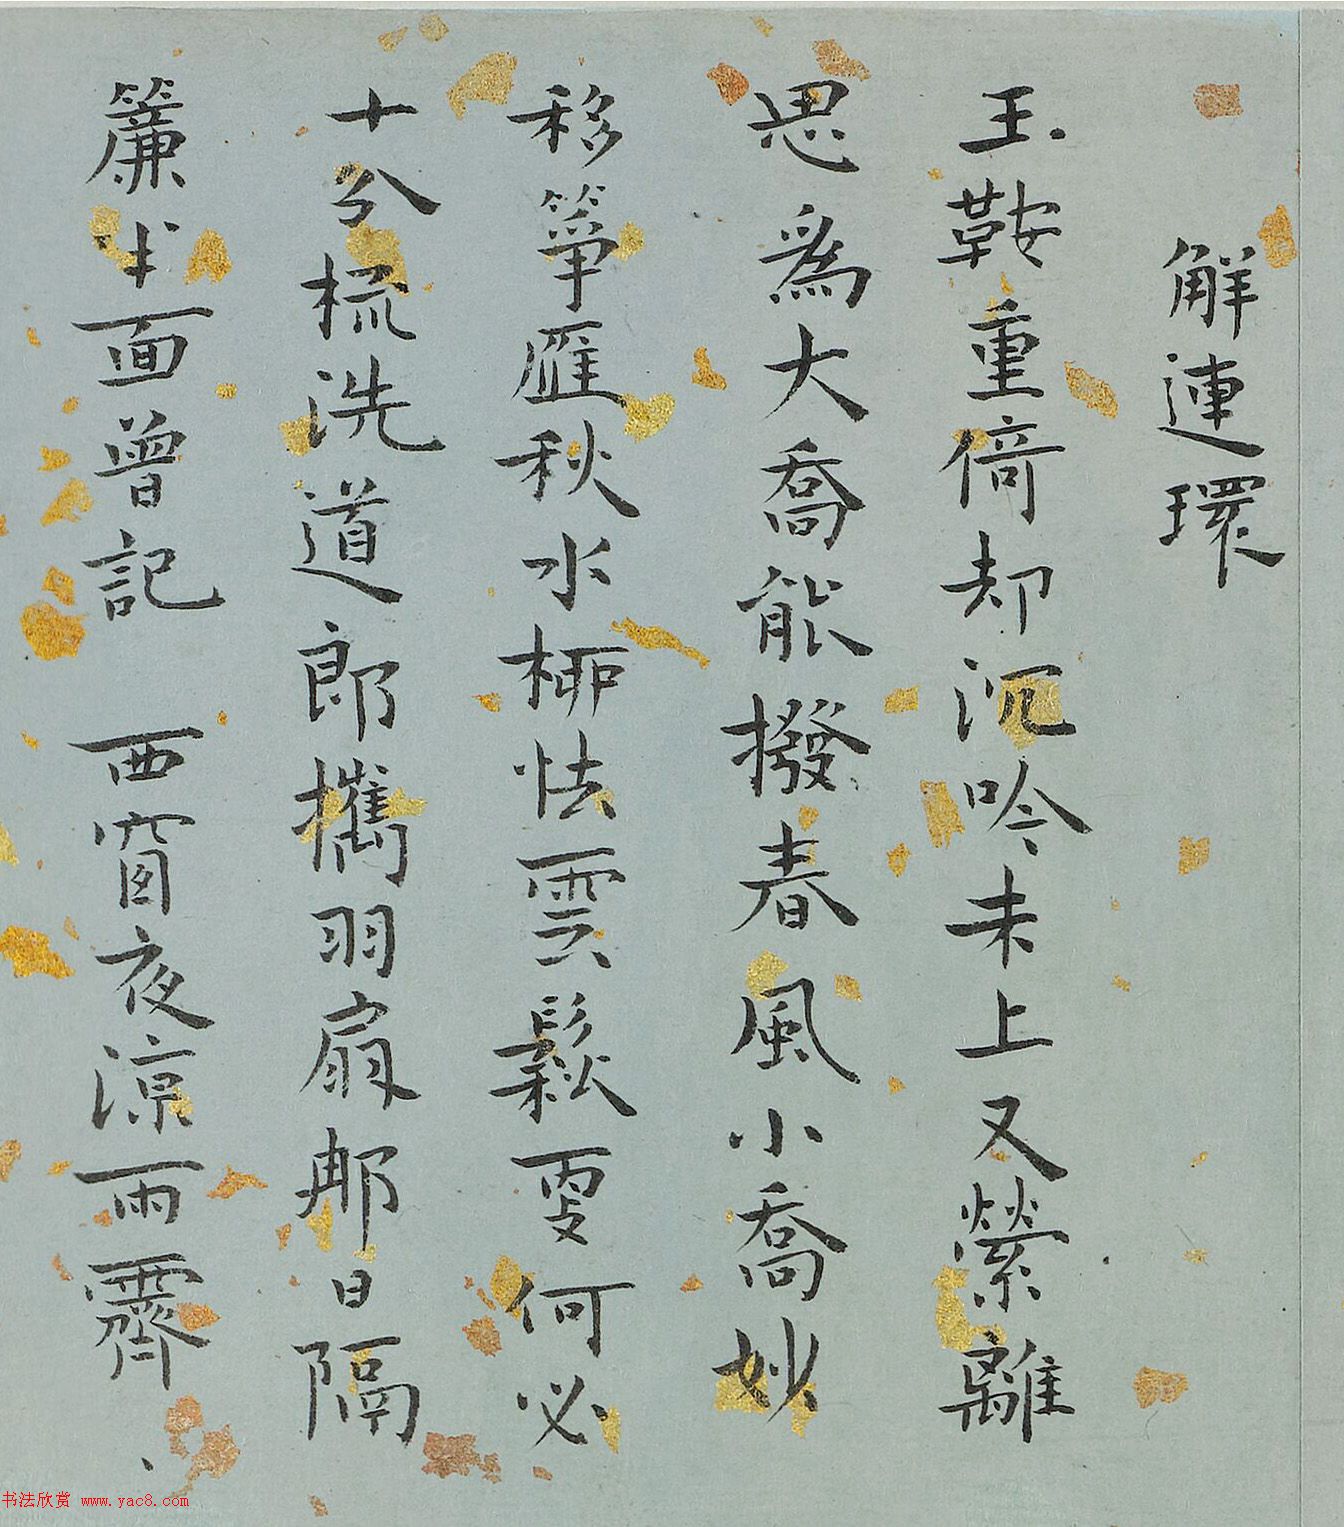 解連環
玉鞍重倚却沉吟未上又縈離
思為大喬能撥春風小喬妙
移箏雁秋水柳怯雲鬆更何必
十分梳洗道郎攜羽扇那日隔
簾半面曾記　西窗夜涼雨霽、
书法欣赏 www.yac8.com